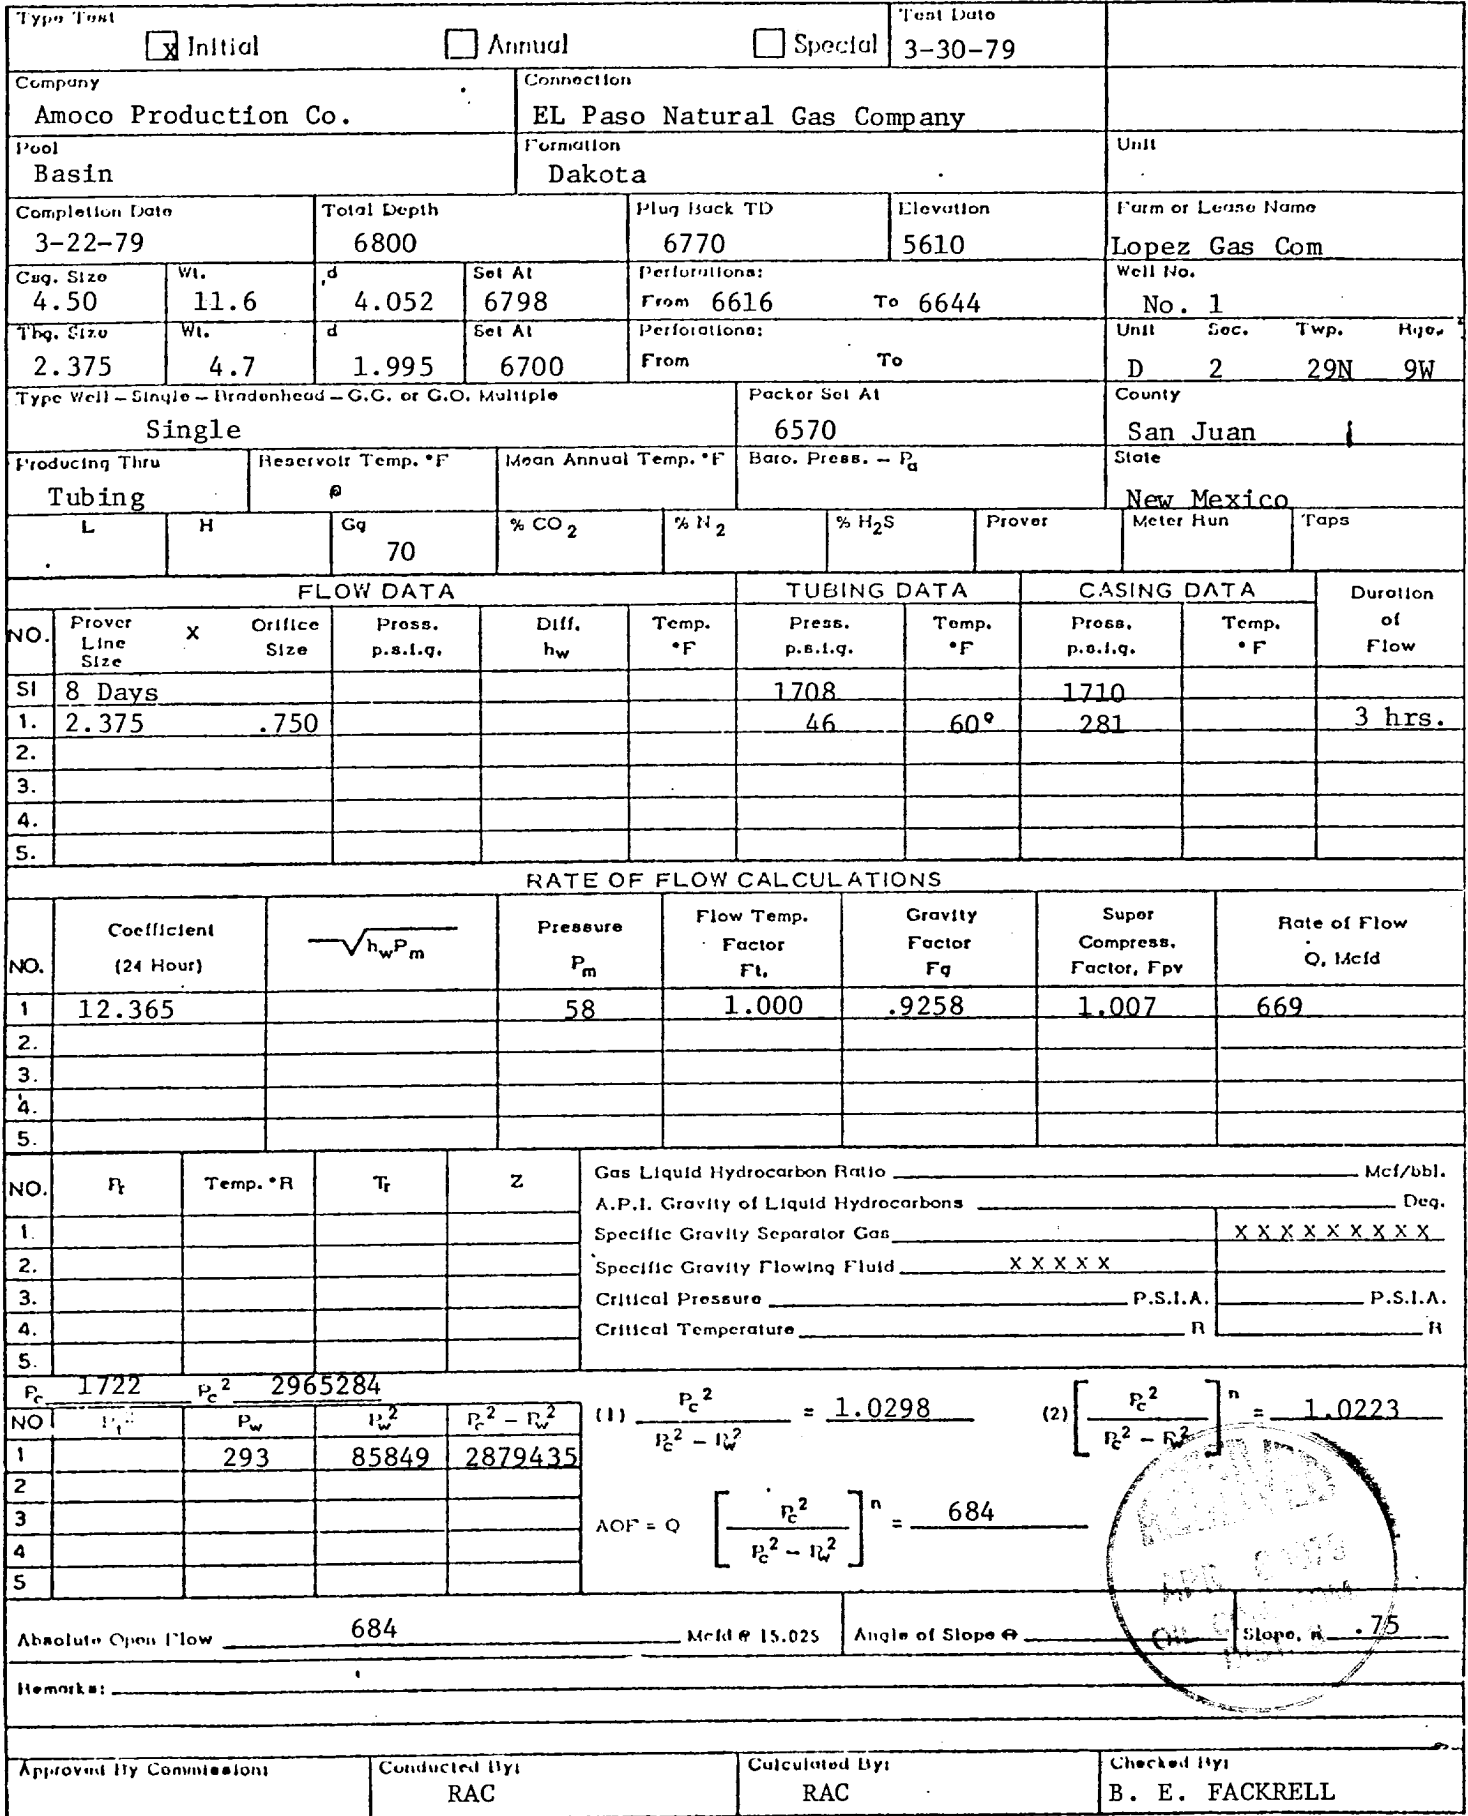 Type Test Test Date
X Initial Annual Special 3-30-79
Company Connection
Amoco Production Co. EL Paso Natural Gas Company
Pool Formation Unit
Basin Dakota
Completion Date Total Depth Plug Back TD Elevation Farm or Lease Name
3-22-79 6800 6770 5610 Lopez Gas Com
Csg. Size Wt. d Set At Perforations: Well No.
4.50 11.6 4.052 6798 From 6616 To 6644 No. 1
Tbg. Size Wt. d Set At Perforations: Unit Sec. Twp. Rge.
2.375 4.7 1.995 6700 From To D 2 29N 9W
Type Well – Single – Bradenhead – G.G. or G.O. Multiple Packer Set At County
Single 6570 San Juan
Producing Thru Reservoir Temp. °F Mean Annual Temp. °F Baro. Press. – Pa State
Tubing New Mexico
L H Gg % CO2 % N2 % H2S Prover Meter Run Taps
70
FLOW DATA TUBING DATA CASING DATA Duration of Flow
NO. Prover Line Size X Orifice Size Press. p.s.i.g. Diff. hw Temp. °F Press. p.s.i.g. Temp. °F Press. p.s.i.g. Temp. °F
SI 8 Days 1708 1710
1. 2.375 .750 46 60° 281 3 hrs.
2.
3.
4.
5.
RATE OF FLOW CALCULATIONS
NO. Coefficient (24 Hour) √hwPm Pressure Pm Flow Temp. Factor Ft. Gravity Factor Fg Super Compress. Factor, Fpv Rate of Flow Q, Mcfd
1 12.365 58 1.000 .9258 1.007 669
2.
3.
4.
5.
NO. Pr Temp. °R Tr Z
Gas Liquid Hydrocarbon Ratio Mcf/bbl.
A.P.I. Gravity of Liquid Hydrocarbons Deg.
1. Specific Gravity Separator Gas X X X X X X X X X
2. Specific Gravity Flowing Fluid X X X X X
3. Critical Pressure P.S.I.A. P.S.I.A.
4. Critical Temperature R R
5.
Pc 1722 Pc2 2965284
NO Pt2 Pw Pw2 Pc2 – Pw2
1 293 85849 2879435
2
3
4
5
(1) Pc2 / Pc2 – Pw2 = 1.0298 (2) [Pc2 / Pc2 – Pw2]n = 1.0223
AOF = Q [Pc2 / Pc2 – Pw2]n = 684
Absolute Open Flow 684 Mcfd @ 15.025 Angle of Slope Θ Slope, n .75
Remarks:
Approved By Commission: Conducted By: Calculated By: Checked By:
RAC RAC B. E. FACKRELL